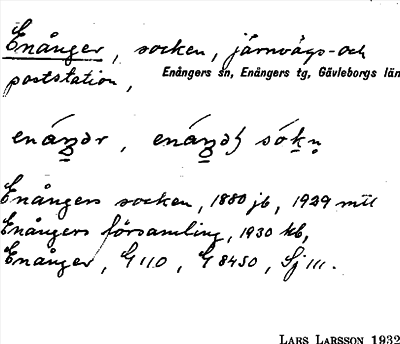 Enånger, socken, järnvägs- och
poststation, Enångers sn, Enångers tg, Gävleborgs län
Enångers socken, 1880 jb, 1929 mtl
Enångers församling, 1930 kb,
Enånger, G 110, G 8450, Sj 111.
LARS LARSSON 1932